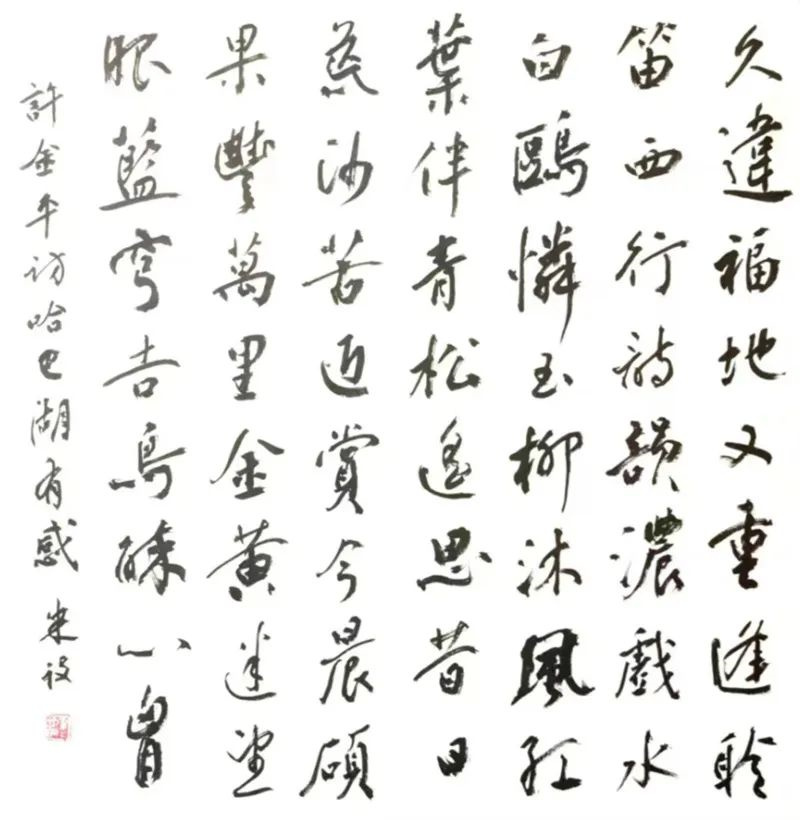 久違福地又重逢聆
笛西行詩韻濃戲水
白鷗憐玉柳沐風紅
葉伴青松遙思昔日
荒沙苦近賞今晨碩
果豐萬里金黃迷望
眼藍穹吉鳥醉心胷
許金平訪哈巴湖有感